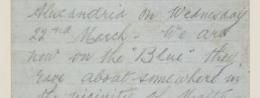 Alexandria on Wednesday
22nd March. We are
now on the "Blue" they
say about somewhere in
the vicinity of